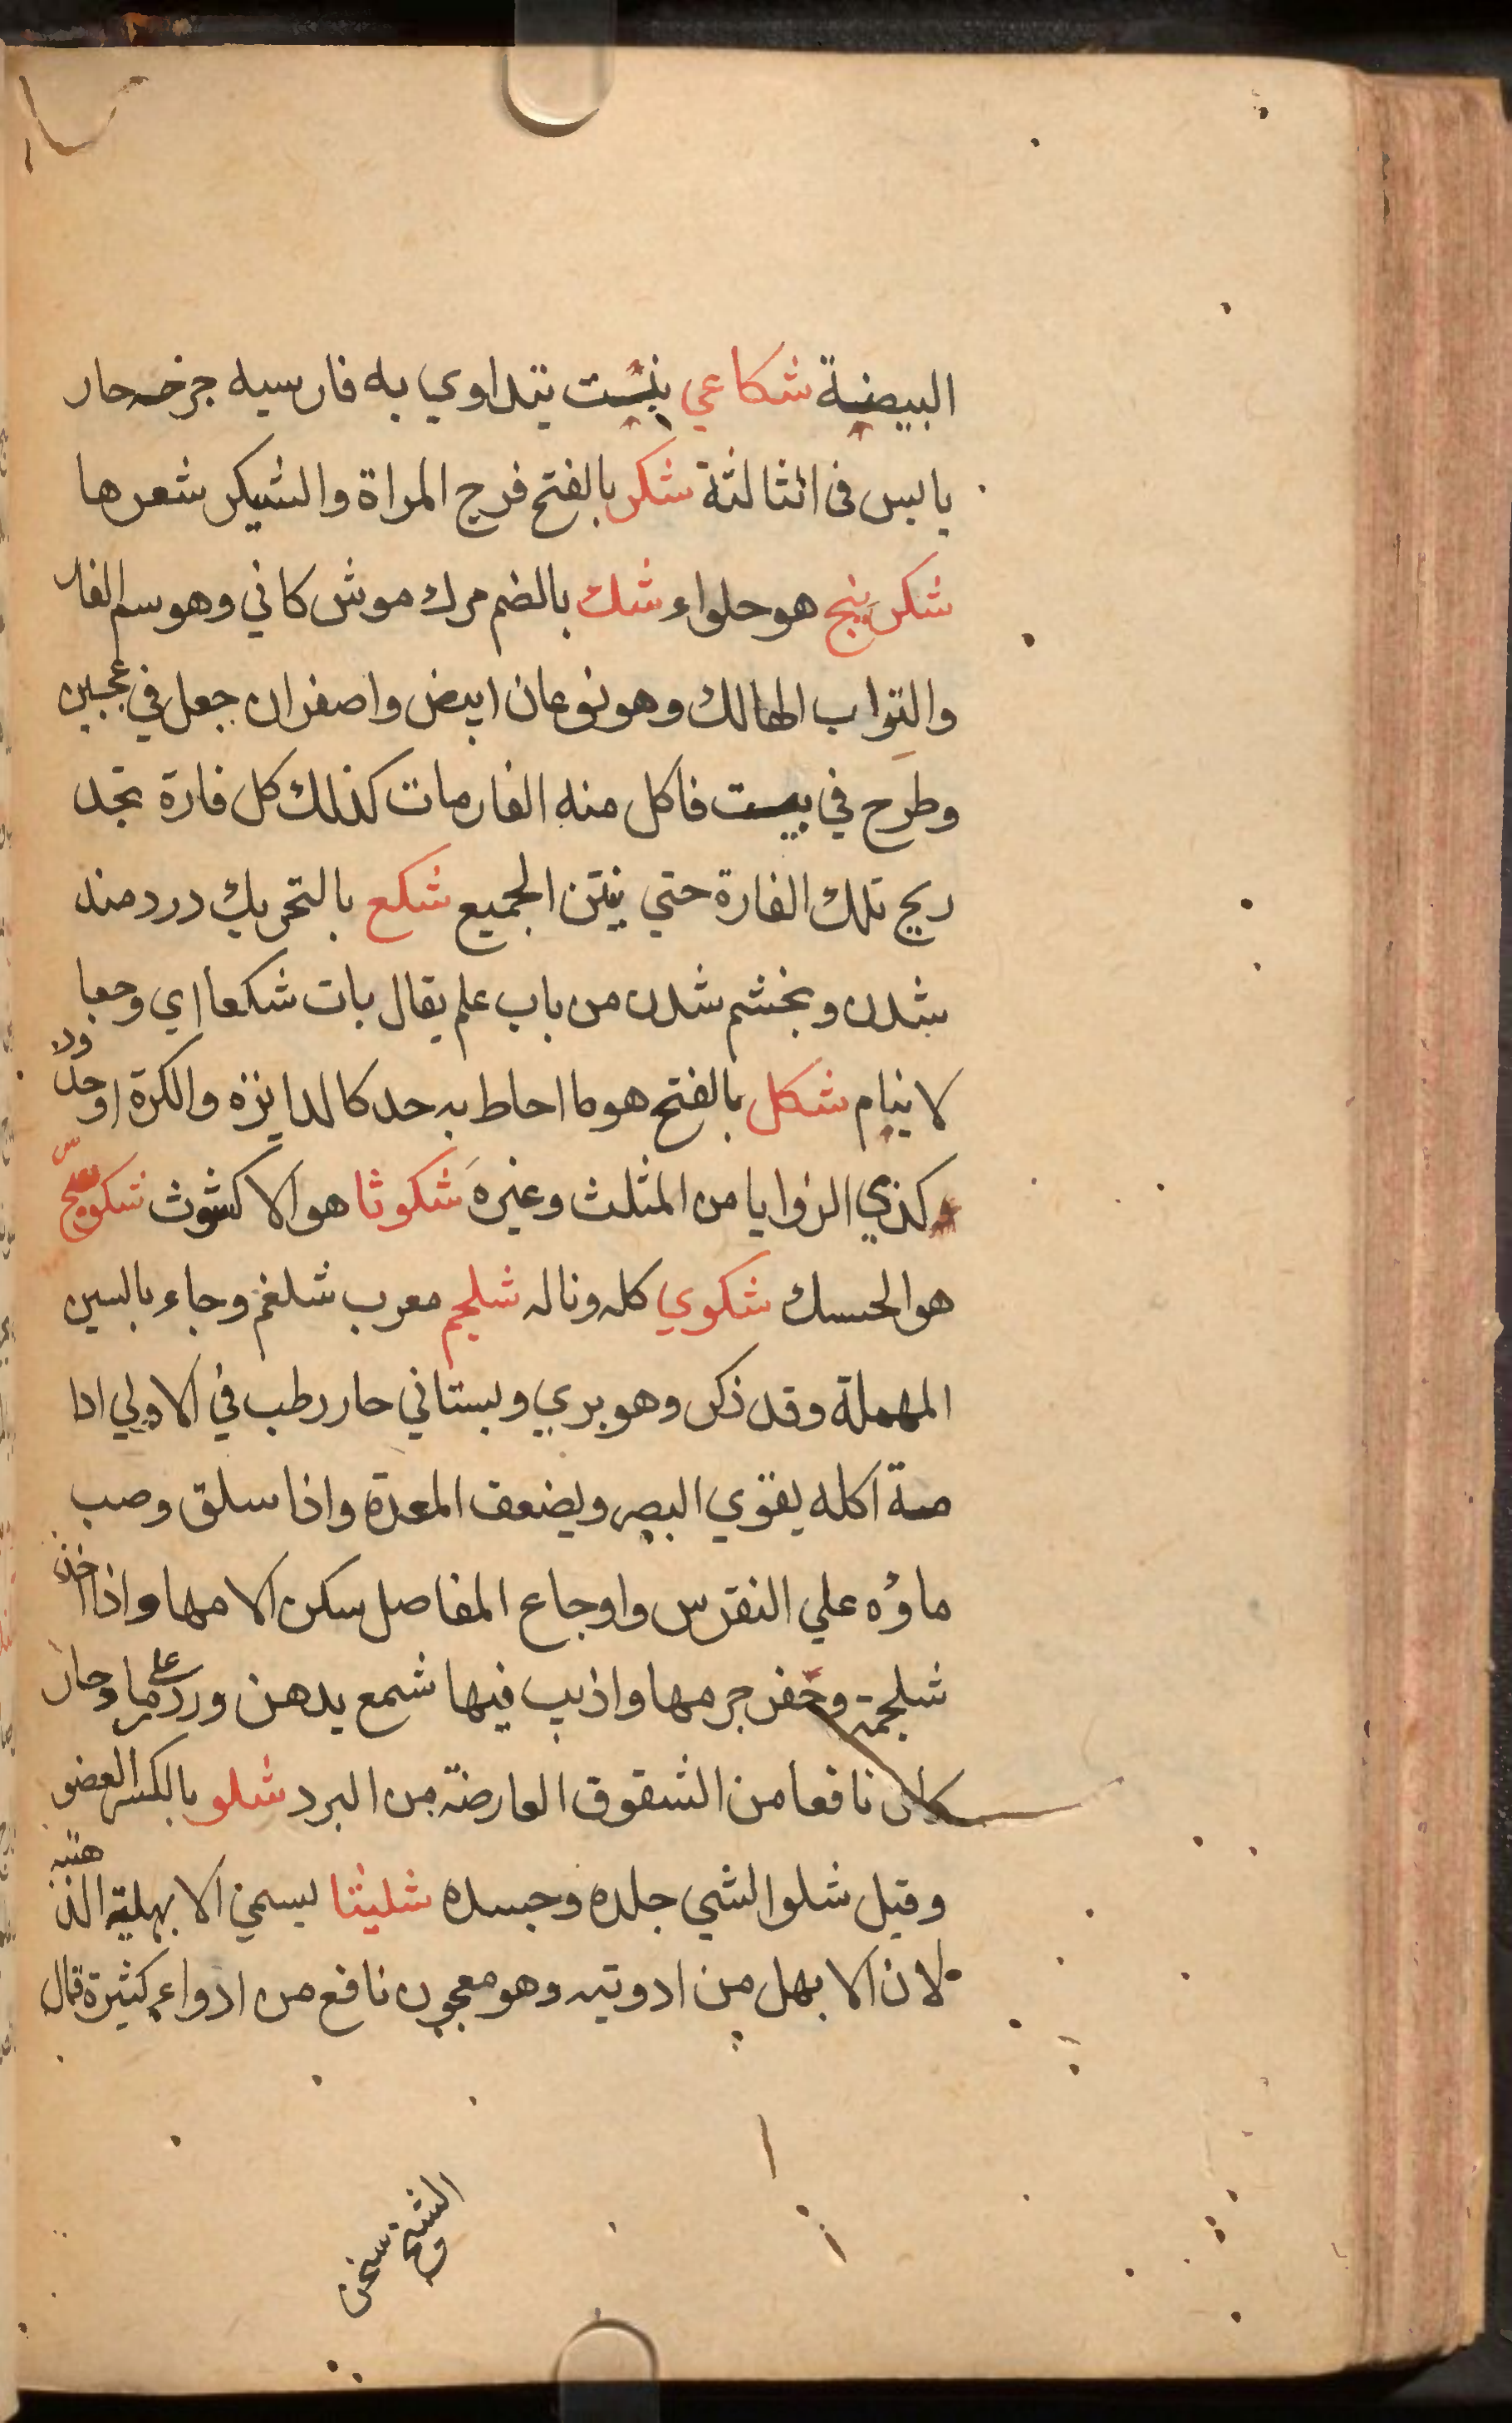 البيضة شكاعي بنست يتداوي به فارسيه جرخه حار
يابس فى الثالثة شكر بالفتح فرج المراة والشيكر شعرها
شكربينج هو حلواء شك بالضم مرك موش كاني وهو سم الفار
والتواب الهالك وهو نوعان ابيض واصفر ان جعل في عجين
وطرح في بيت فاكل منه الفار مات كذلك كل فارة تجد
ريح تلك الفارة حتي ينتن الجميع شكع بالتحريك دردمند
شدن وبخشم شدن من باب علم يقال بات شكعا اي وجعا
لا ينام شكل بالفتح هو ما احاط به حد كالدايرة والكرة او حدود
كذي الزوايا من المثلث وغيره شكوثا هو الاكشوث
هو الحسك شكوي كله وناله شلجم معرب شلغم وجاء بالسين
المهملة وقد ذكر وهو بري وبستاني حار رطب في الاولي ادا
مة اكله يقوي البصر ويضعف المعدة واذا سلق وصب
ماؤه علي النقرس واوجاع المفاصل سكن الامها واذا اخذ
شلجمة وحفر جرمها واذيب فيها شمع بدهن ورد علي رماد حار
كان نافعا من الشقوق العارضة من البرد شلو بالكسر العضو
وقيل شلو الشي جلده وجسده شليثا يسمي الابهلية الذهنية
لان الابهل من ادويته وهو معجون نافع من ادواء كثيرة قال
الشيخ